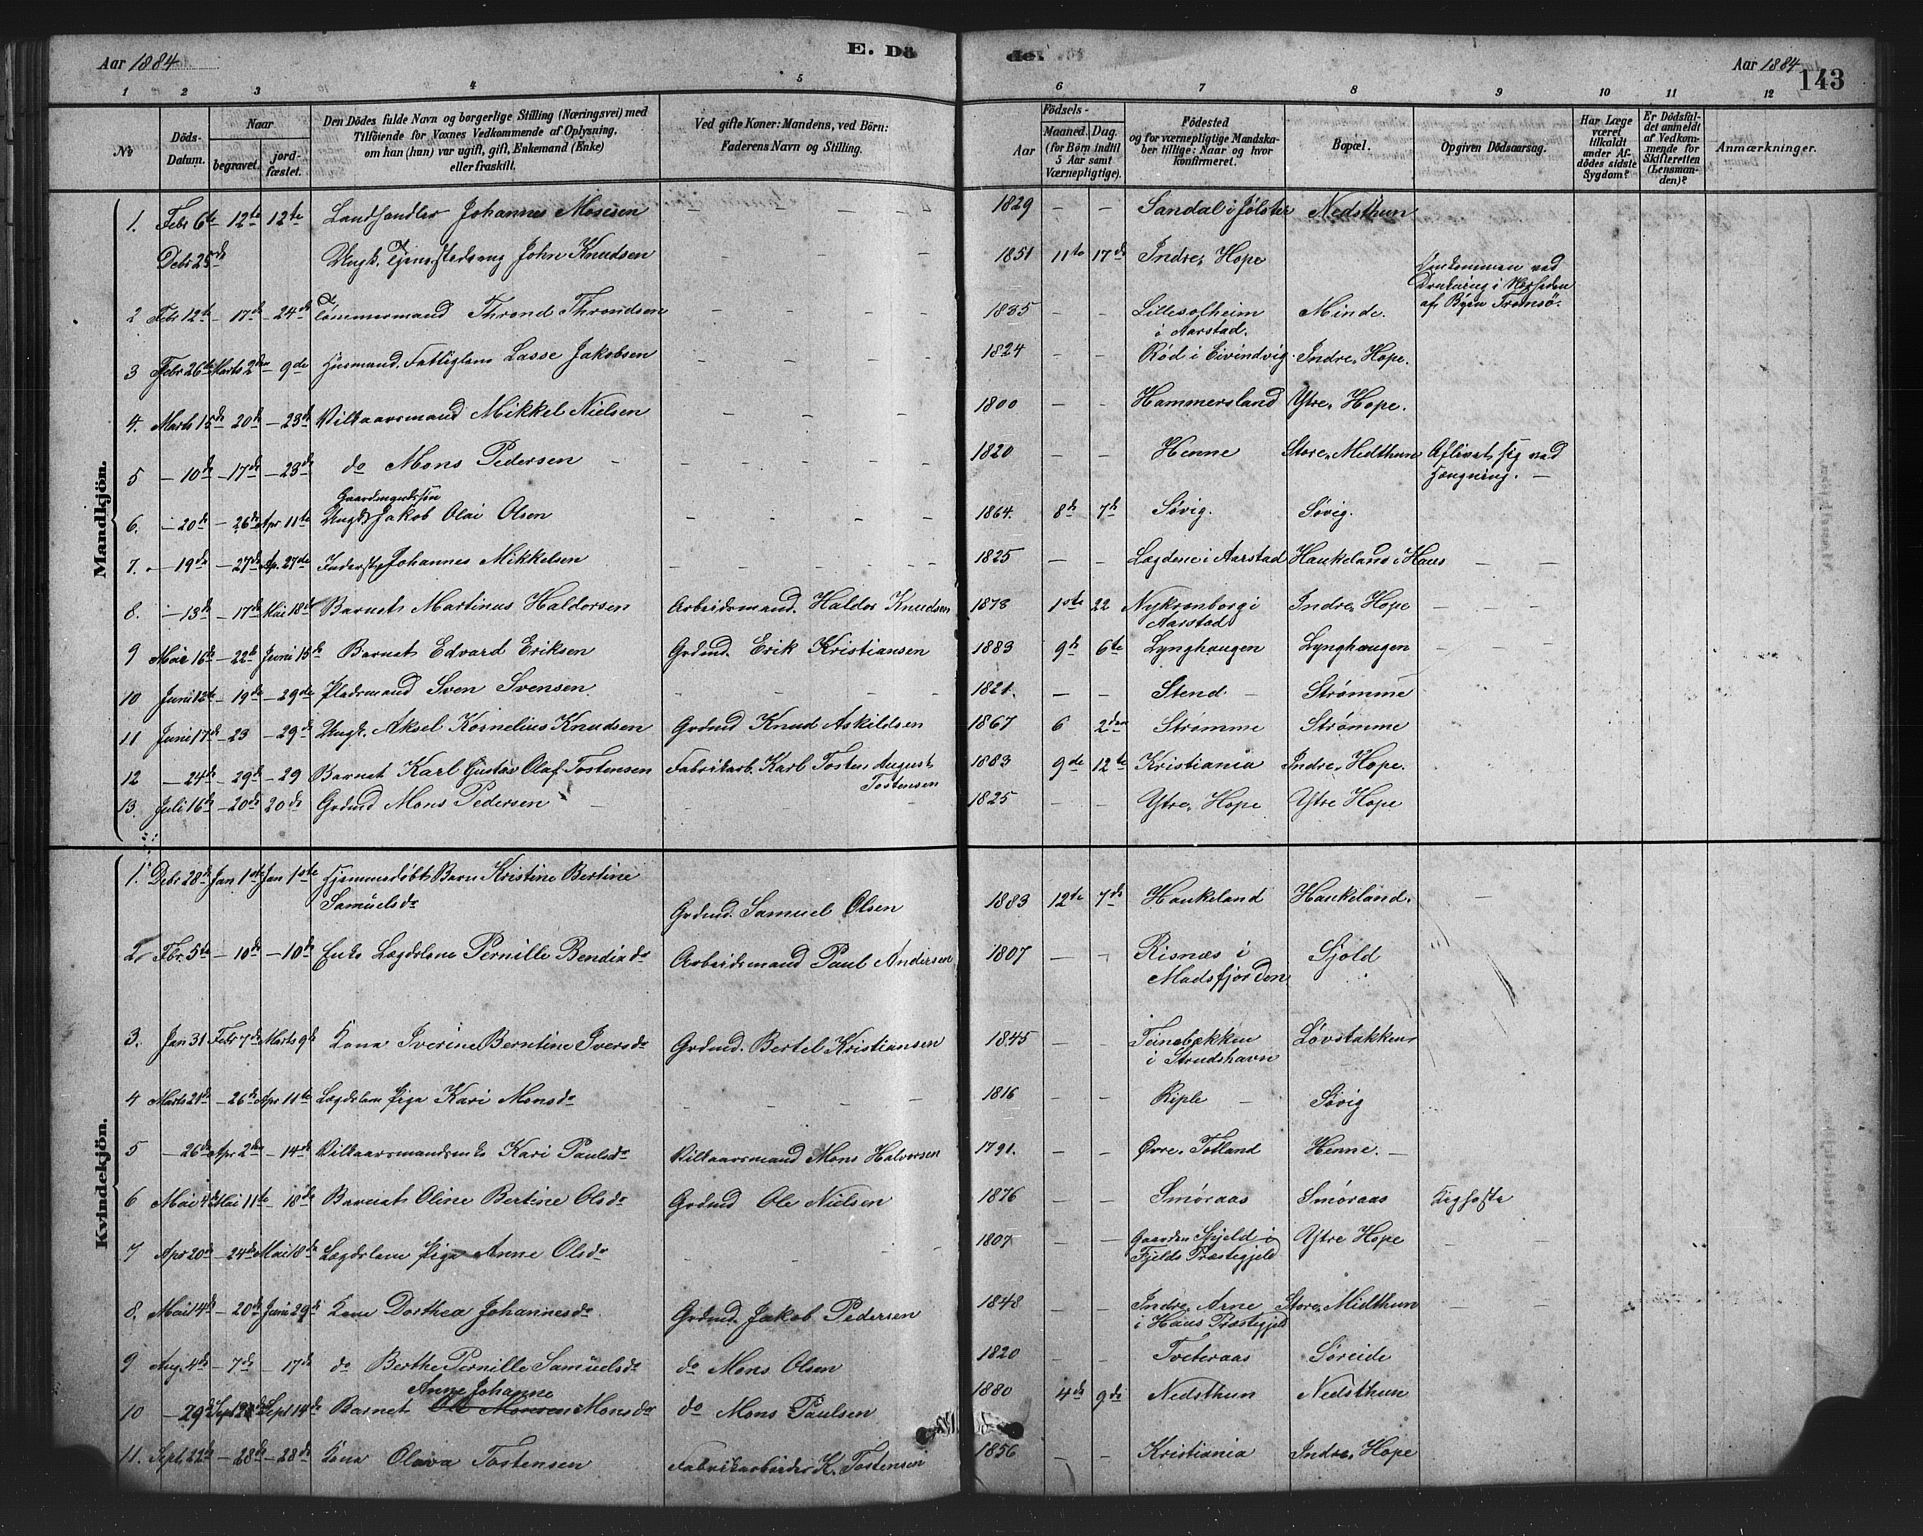 Aar 1884 E. Dö
de. Aar 1884 143
1 2 3 4 5
6 7 8 9 10 11 12
No Döds-Datum. Naar begravet. jord-fæstet. Den Dödes fulde Navn og borgerlige Stilling (Næringsvei) med Tilföiende for Voxnes Vedkommende af Oplysning, om han (hun) var ugift, gift, Enkemand (Enke) eller fraskilt. Ved gifte Koner: Mandens, ved Börn: Faderens Navn og Stilling.
Födsels- Aar Maaned. Dag. (for Börn indtil 5 Aar samt Værnepligtige). Födested og for værnepligtige Mandskaber tillige: Naar og hvor konfirmeret. Bopæl. Opgiven Dödsaarsag. Har Læge været tilkaldt under Afdödes sidste Sygdom? Er Dödsfaldet anmeldt af Vedkommende for Skifteretten (Lensmanden)? Anmærkninger.
Mandkjön.
1. Febr 6te – 12te 12te Landhandler Johannes Mosesen – – – 1829 – – Sandal i Jölster Nedsthun
Debr 25de Ungk. Tjenestedreng John Knudsen 1851 11te 17de Indre Hope Omkommen ved
Drukning i Nærheden
af Byen Tromsö.
2 Febr 12te – 17de – 24de Tömmermand Thrond Throndsen – – – 1835 – – Lillesolheim Minde.
i Aarstad.
3 Febr 26te Marts 2den – 9de Husmand. Fattiglem Lasse Jakobsen – – – 1824 – – Röd i Eivindvig. Indre Hope.
4. Marts 15de – 20de – 23de Vilkaarsmand Mikkel Nielsen – – – 1800 – – Hammersland Ytre Hope.
5 – 10de – 17de – 23de do Mons Pedersen – – – – 1820 – – Henne Store Midthun Aflivet sig ved
Hængning. –
Gaardmandssön
6. – 20de – 26de Apr. 11te Ungk. Jakob Olai Olsen – – – 1864. 8de 7de Søvig. Søvig.
7. – 19de – 27de Ap. 27de Inderst Johannes Mikkelsen – – – 1825 – – Lægdene i Aarstad Haukeland i Haus – –
8. – 13de – 17de Mai 18de Barnet Martinus Haldorsen Arbeidsmand. Haldor Knudsen 1878 10de 22 Nykronborg i Indre Hope – – –
Aarstad
9 Mai 16de – 22de Juni 15de Barnet Edvard Eriksen Grdmd. Erik Kristiansen 1883 9de 6te Lynghaugen Lynghaugen – –
10 Juni 12te – 19de – 29de Pladsmand Sven Svensen – – – 1821. – – Stend – Strømme
11 Juni 17de – 23 – 29de Ungk. Aksel Kornelius Knudsen Grdmd Knud Askildsen 1867 6 2den Strømme Strømme
12 – 24de – 29de – 29 Barnet Karl Gustav Olaf Tostensen Fabrikarb. Karl Tosten August 1883 9de 12te Kristiania Indre Hope.
Tostensen
13. Juli 16de – 20de 20de Grdmd Mons Pedersen – – – 1825 – – Ytre Hope Ytre Hope
Kvindekjön.
1. Debr 28de Jan 1ste Jan 1ste Hjemmedøbt Barn Kristine Bertine
Samuelsdr Grdmd. Samuel Olsen 1883 12te 7de Haukeland Haukeland. –
2. Fbr. 5te – 10de – 10de Enke Lægdslem Pernille Bendixdr Arbeidsmand Paul Andersen 1807 – – Risnæs i Sjold
Madsfjorden
3. Jan 31 Febr 7de Marts 9de Kone Iverine Berntine Iversdr Grdmd. Bertel Kristiansen 1845 – – Teinebækken Løvstakken
i Strudshavn
4 Marts 21de – 26de Apr 11te Lægdslem Pige Kari Monsdr – – – 1816 – – Riple – Søvig
5 – 26de Apr 2den – 14de Vilkaarsmandsenke Kari Paulsdr Vilkaarsmand Mons Halvorsen 1791. – – Øvre Totland Henne. –
6 Mai 4de Mai 11te – 18de Barnet Oline Bertine Olsdr Grdmd Ole Nielsen 1876 – – Smøraas Smøraas Kighoste
7 Apr 20de – 24de Mai 18de Lægdslem Pige Anne Olsdr – – – 1807 – – Gaarden Skjeld i Ytre Hope – –
Fjelds Præstegjeld
8. Mai 14de – 20de Juni 29de Kone Dorthea Johannesdr Grdmd. Jakob Pedersen 1848 – – Indre Arne Store Midthun – –
i Haus Præstegjeld
9 Aug. 4de – 7de – 17de do Berthe Pernille Samuelsdr do Mons Olsen 1820 – – Tveteraas Søreide
Anne Johanne
10 – 29de Sept Sept 14de Barnet Monsdr do Mons Paulsen 1880 4de 9de Nedsthun Nedsthun
11. Sept. 22de – 28de – 28de Kone Olava Tostensen Fabrikarbeider K. Tostensen 1856 – – Kristiania Indre Hope